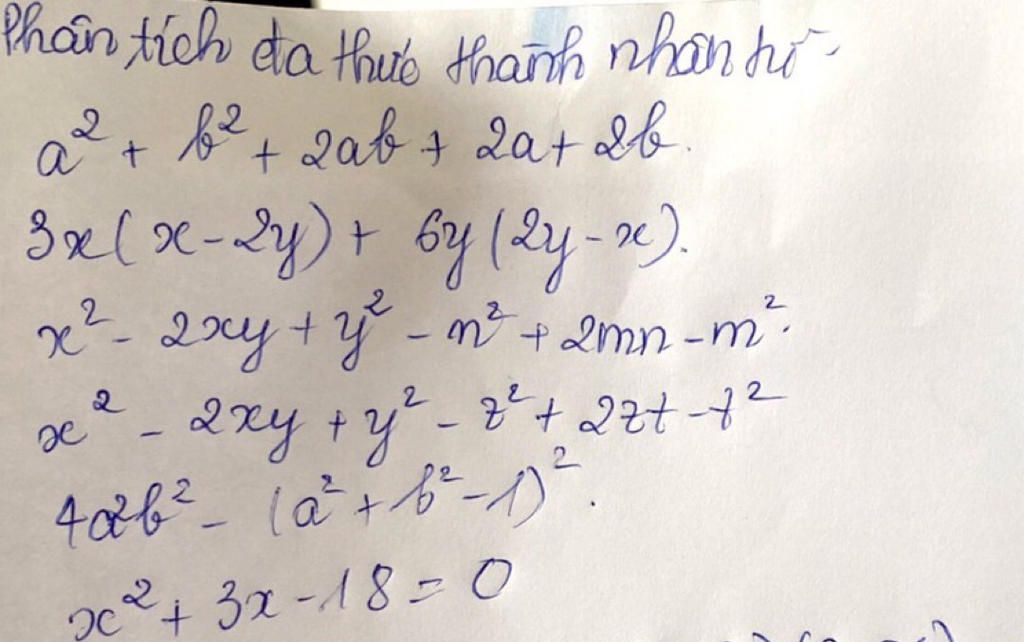 Phân tích đa thức thành nhân tử.
a² + b² + 2ab + 2a + 2b.
3x(x - 2y) + 6y(2y - x).
x² - 2xy + y² - n² + 2mn - m².
x² - 2xy + y² - z² + 2zt - t²
4a²b² - (a² + b² - 1)².
x² + 3x - 18 = 0